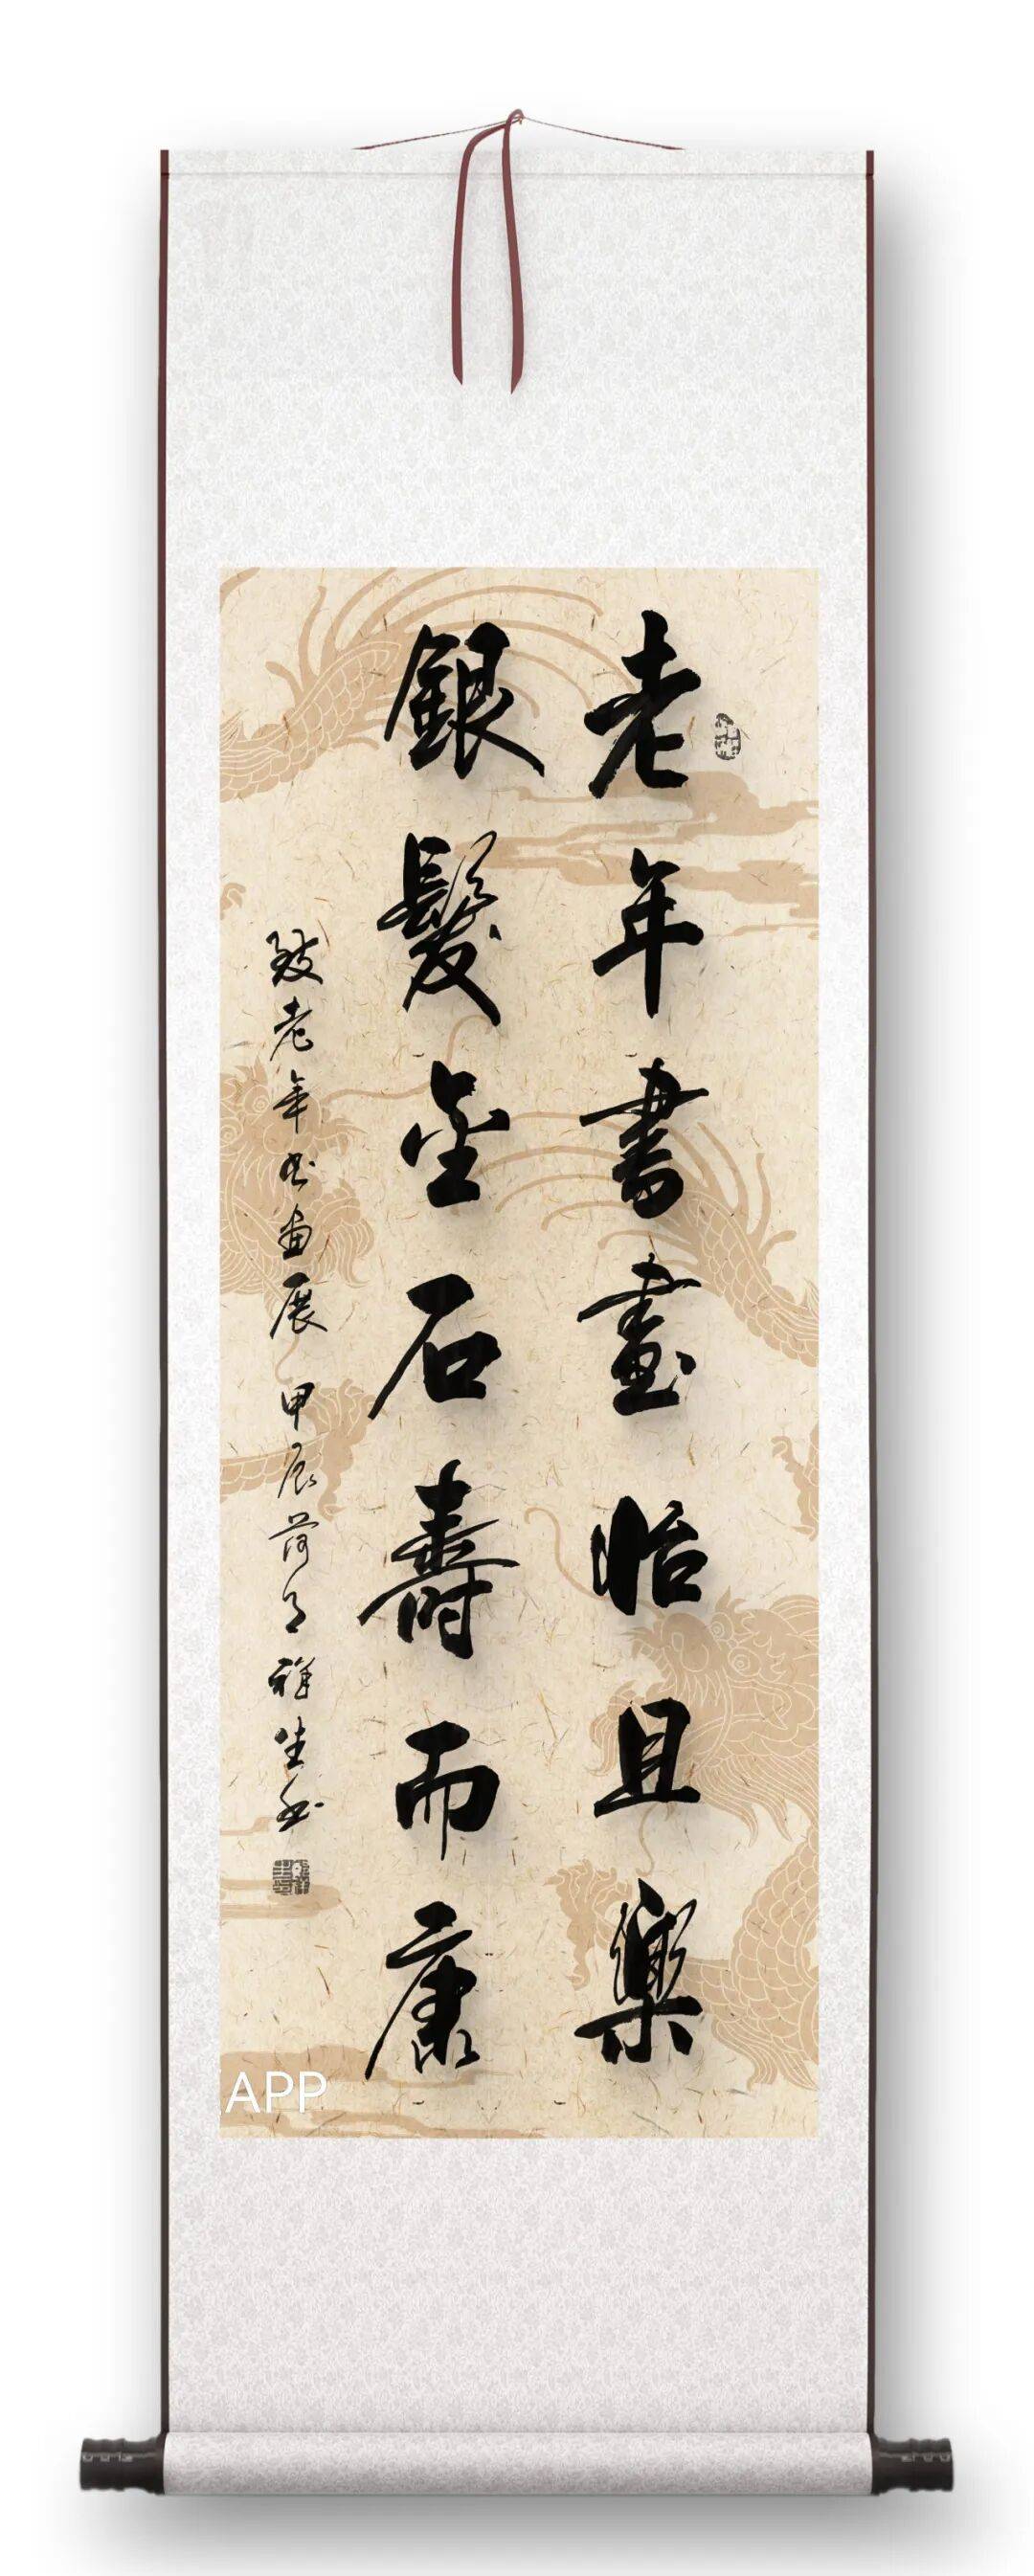 老年書畫怡且樂
銀髮金石壽而康
致老年书画展 甲辰荷月 祥生书
APP